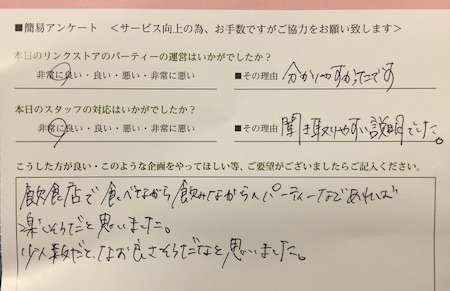 ■簡易アンケート ＜サービス向上の為、お手数ですがご協力をお願い致します＞
本日のリンクストアのパーティーの運営はいかがでしたか？
非常に良い・良い・悪い・非常に悪い ■その理由 分かりやすかったです
本日のスタッフの対応はいかがでしたか？
非常に良い・良い・悪い・非常に悪い ■その理由 聞き取りやすい説明でした。
こうした方が良い・このような企画をやってほしい等、ご要望がございましたらご記入ください。
飲食店で食べながら飲みながらのパーティーなどあれば
楽しそうだと思いました。
少人数だと、なお良さそうだなと思いました。